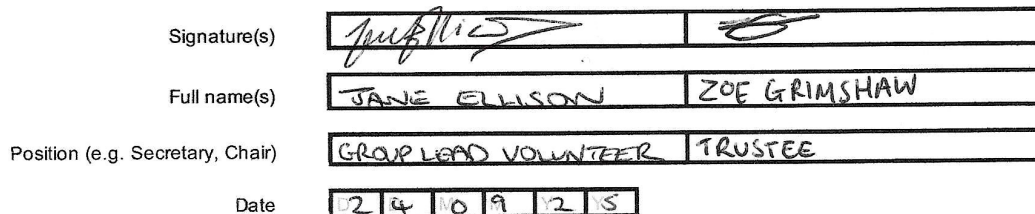 Signature(s)
Full name(s) JANE ELLISON ZOE GRIMSHAW
Position (e.g. Secretary, Chair) GROUP LEAD VOLUNTEER TRUSTEE
Date 24 09 25